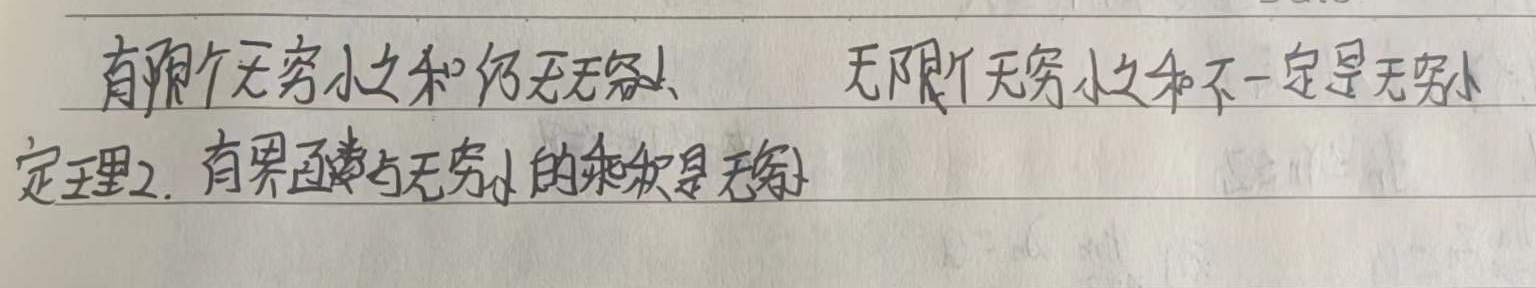 有限个无穷小之和仍无无穷小、 无限个无穷小之和不一定是无穷小
定理2. 有界函数与无穷小的乘积是无穷小